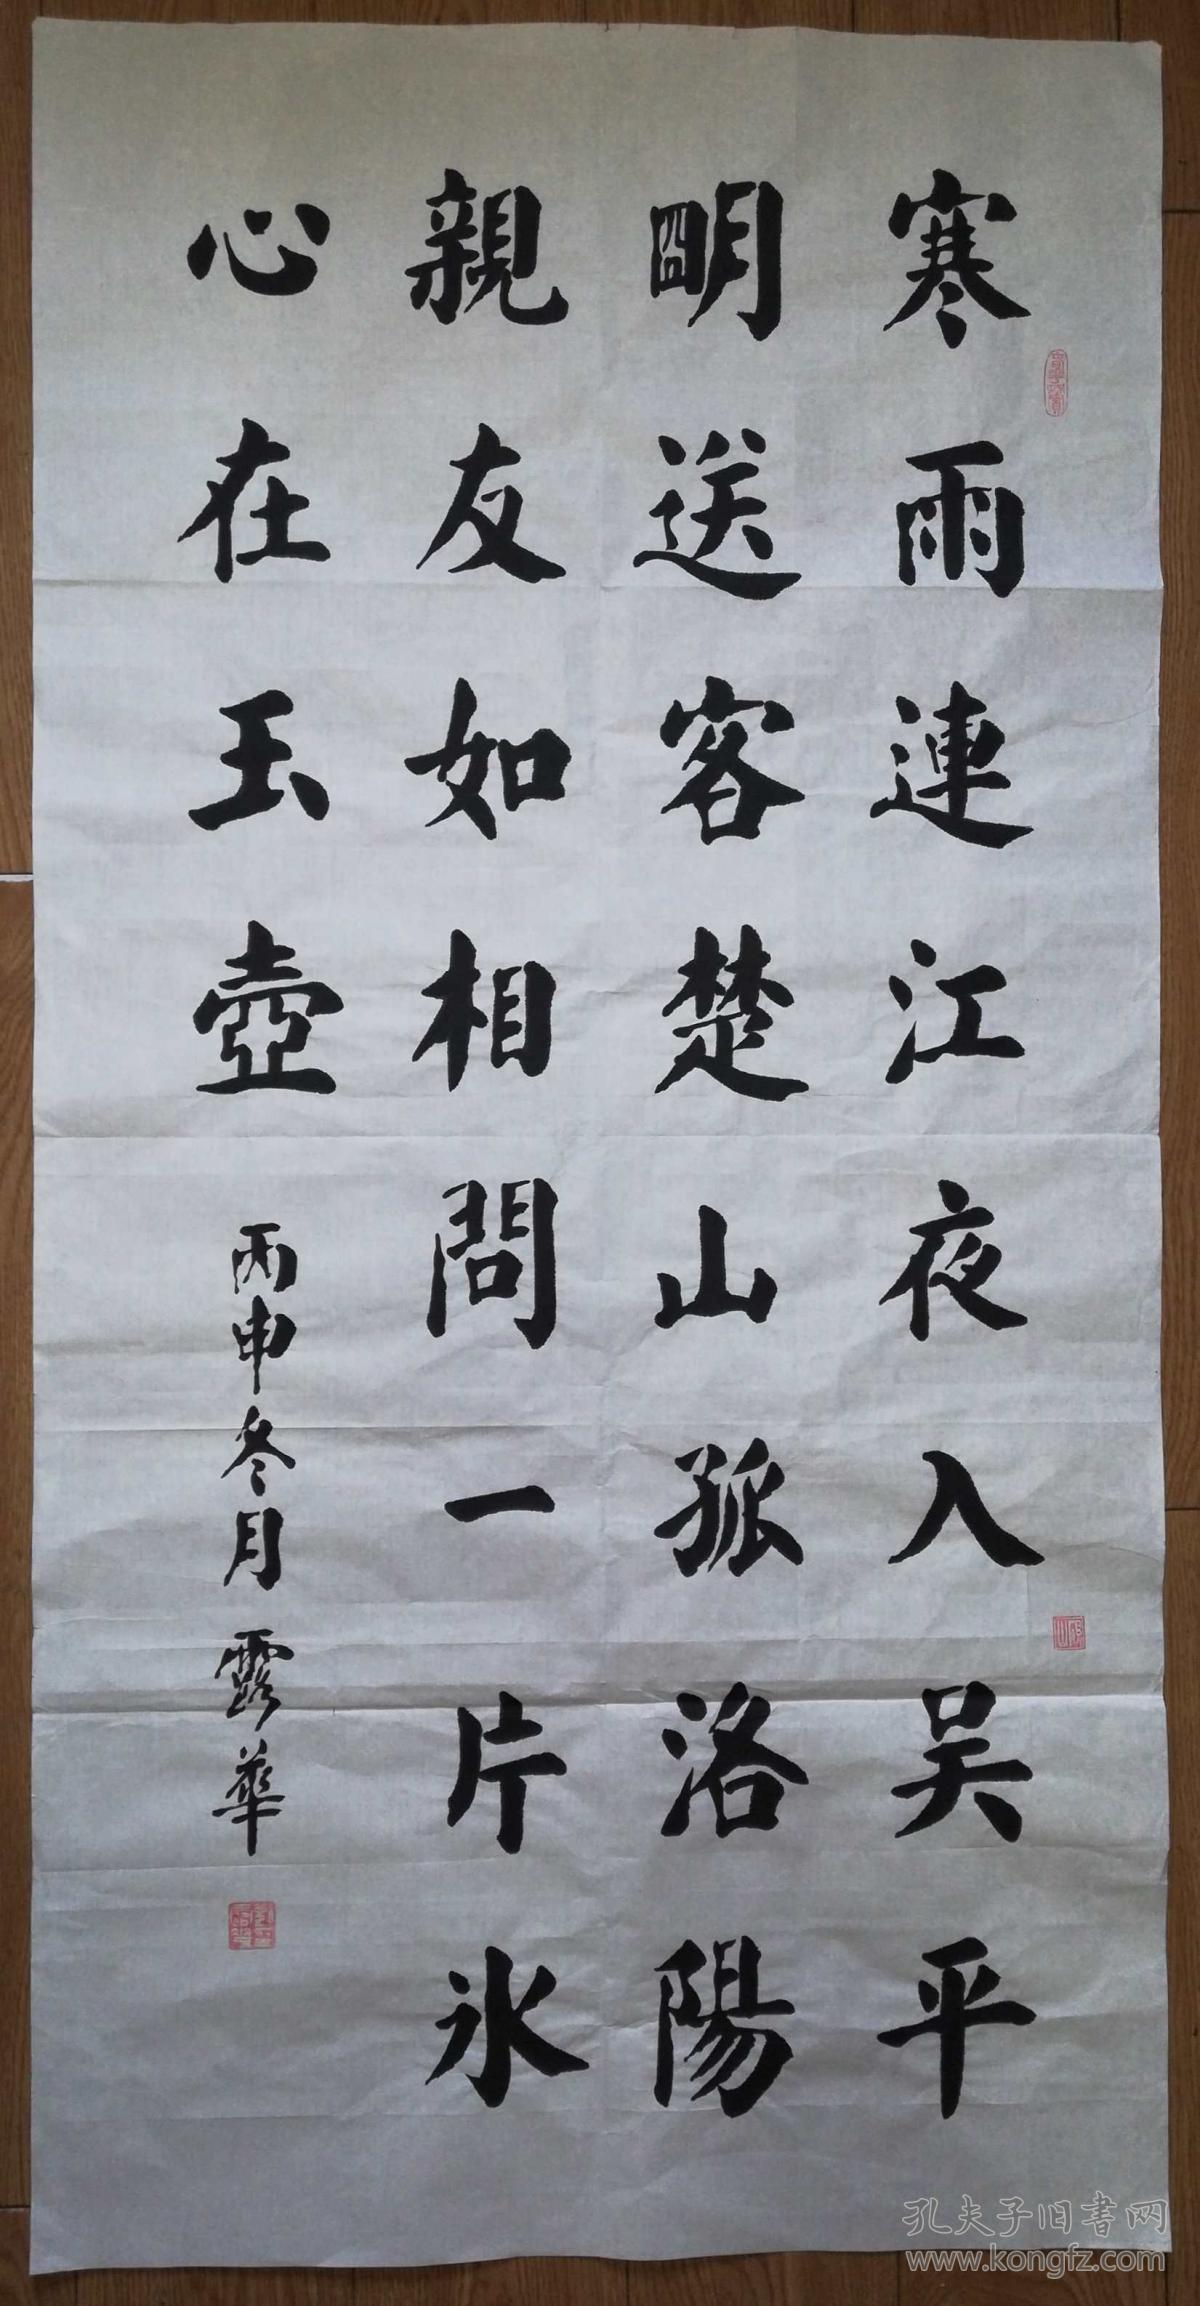 寒雨連江夜入吴平
明送客楚山孤洛陽
親友如相問一片氷
心在玉壺
丙申冬月 露華
孔夫子旧書网
www.kongfz.com